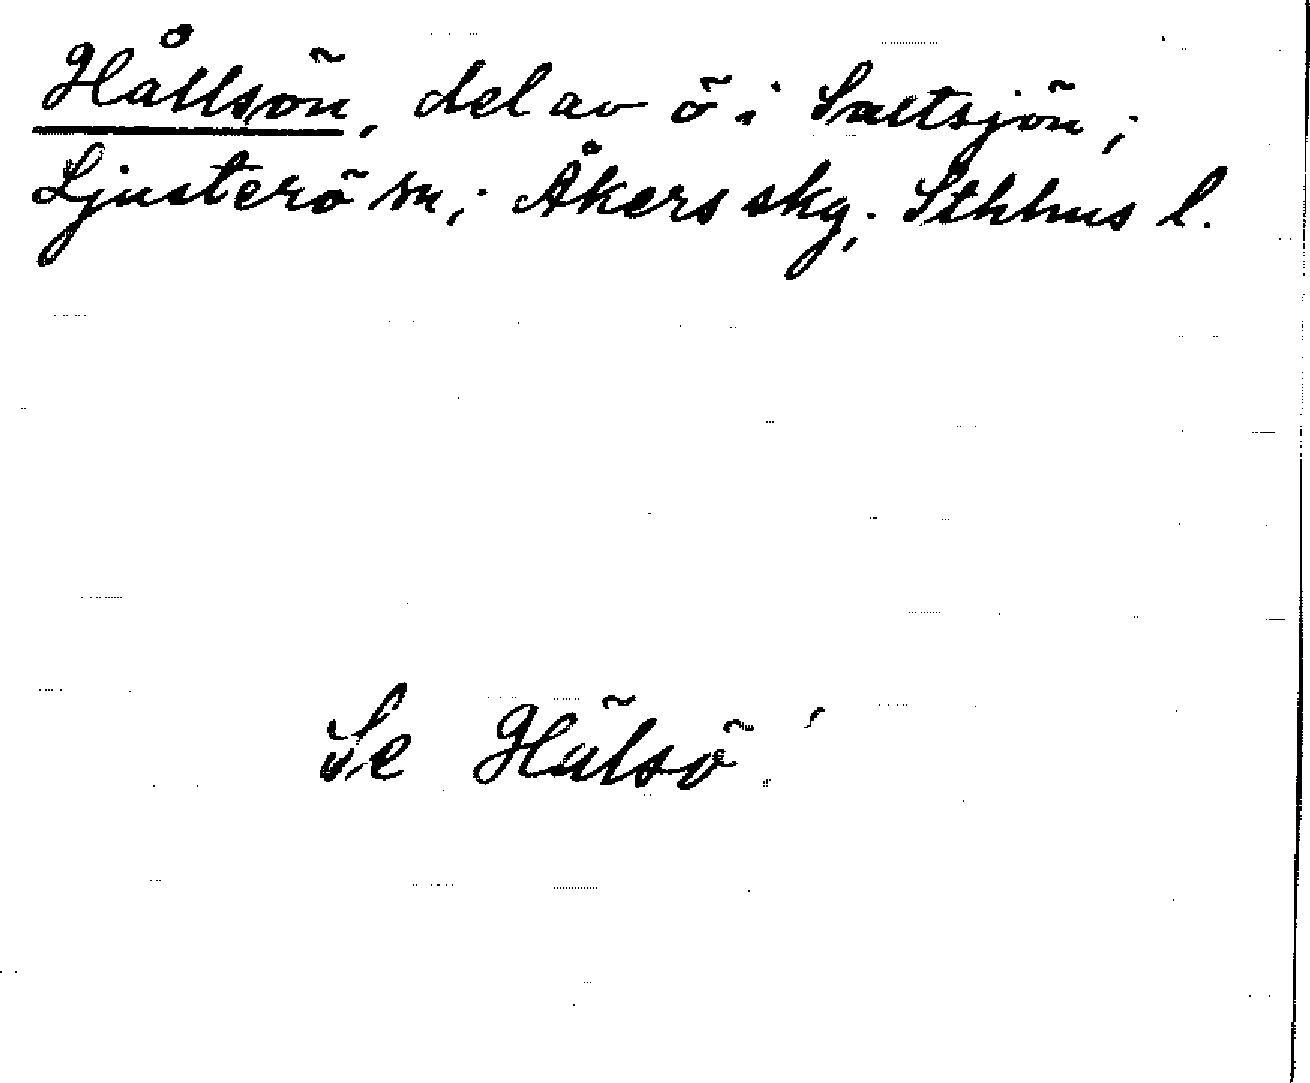 Hållsön, del av ö i Saltsjön;
Ljusterö sn; Åkers skg; Sthlms l.
Se Hälsö